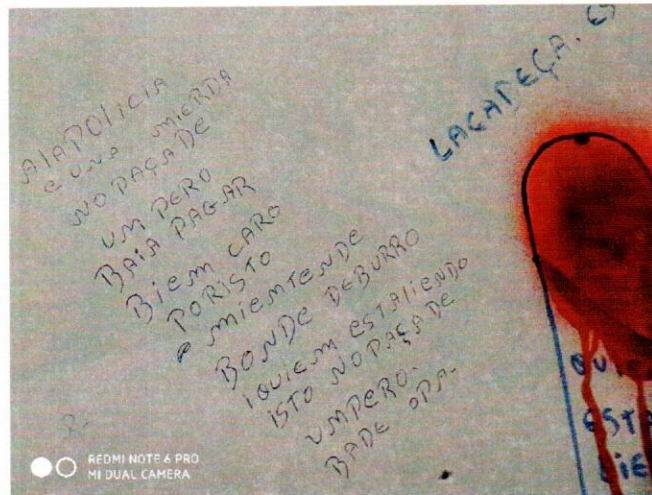 AlAPOLICIA
e UNA MIERDA
NO PAÇADE
UM PERO
BAIA PAGAR
BIEM CARO
PORISTO
e MIEMTENDE
BONDE DEBURRO
IQUIEM ESTALIENDO
ISTO NO PAÇADE
UMPERO.
BADE OPA-
LACADEÇA. ES
QUI
ESTA
BIE
REDMI NOTE 6 PRO
MI DUAL CAMERA